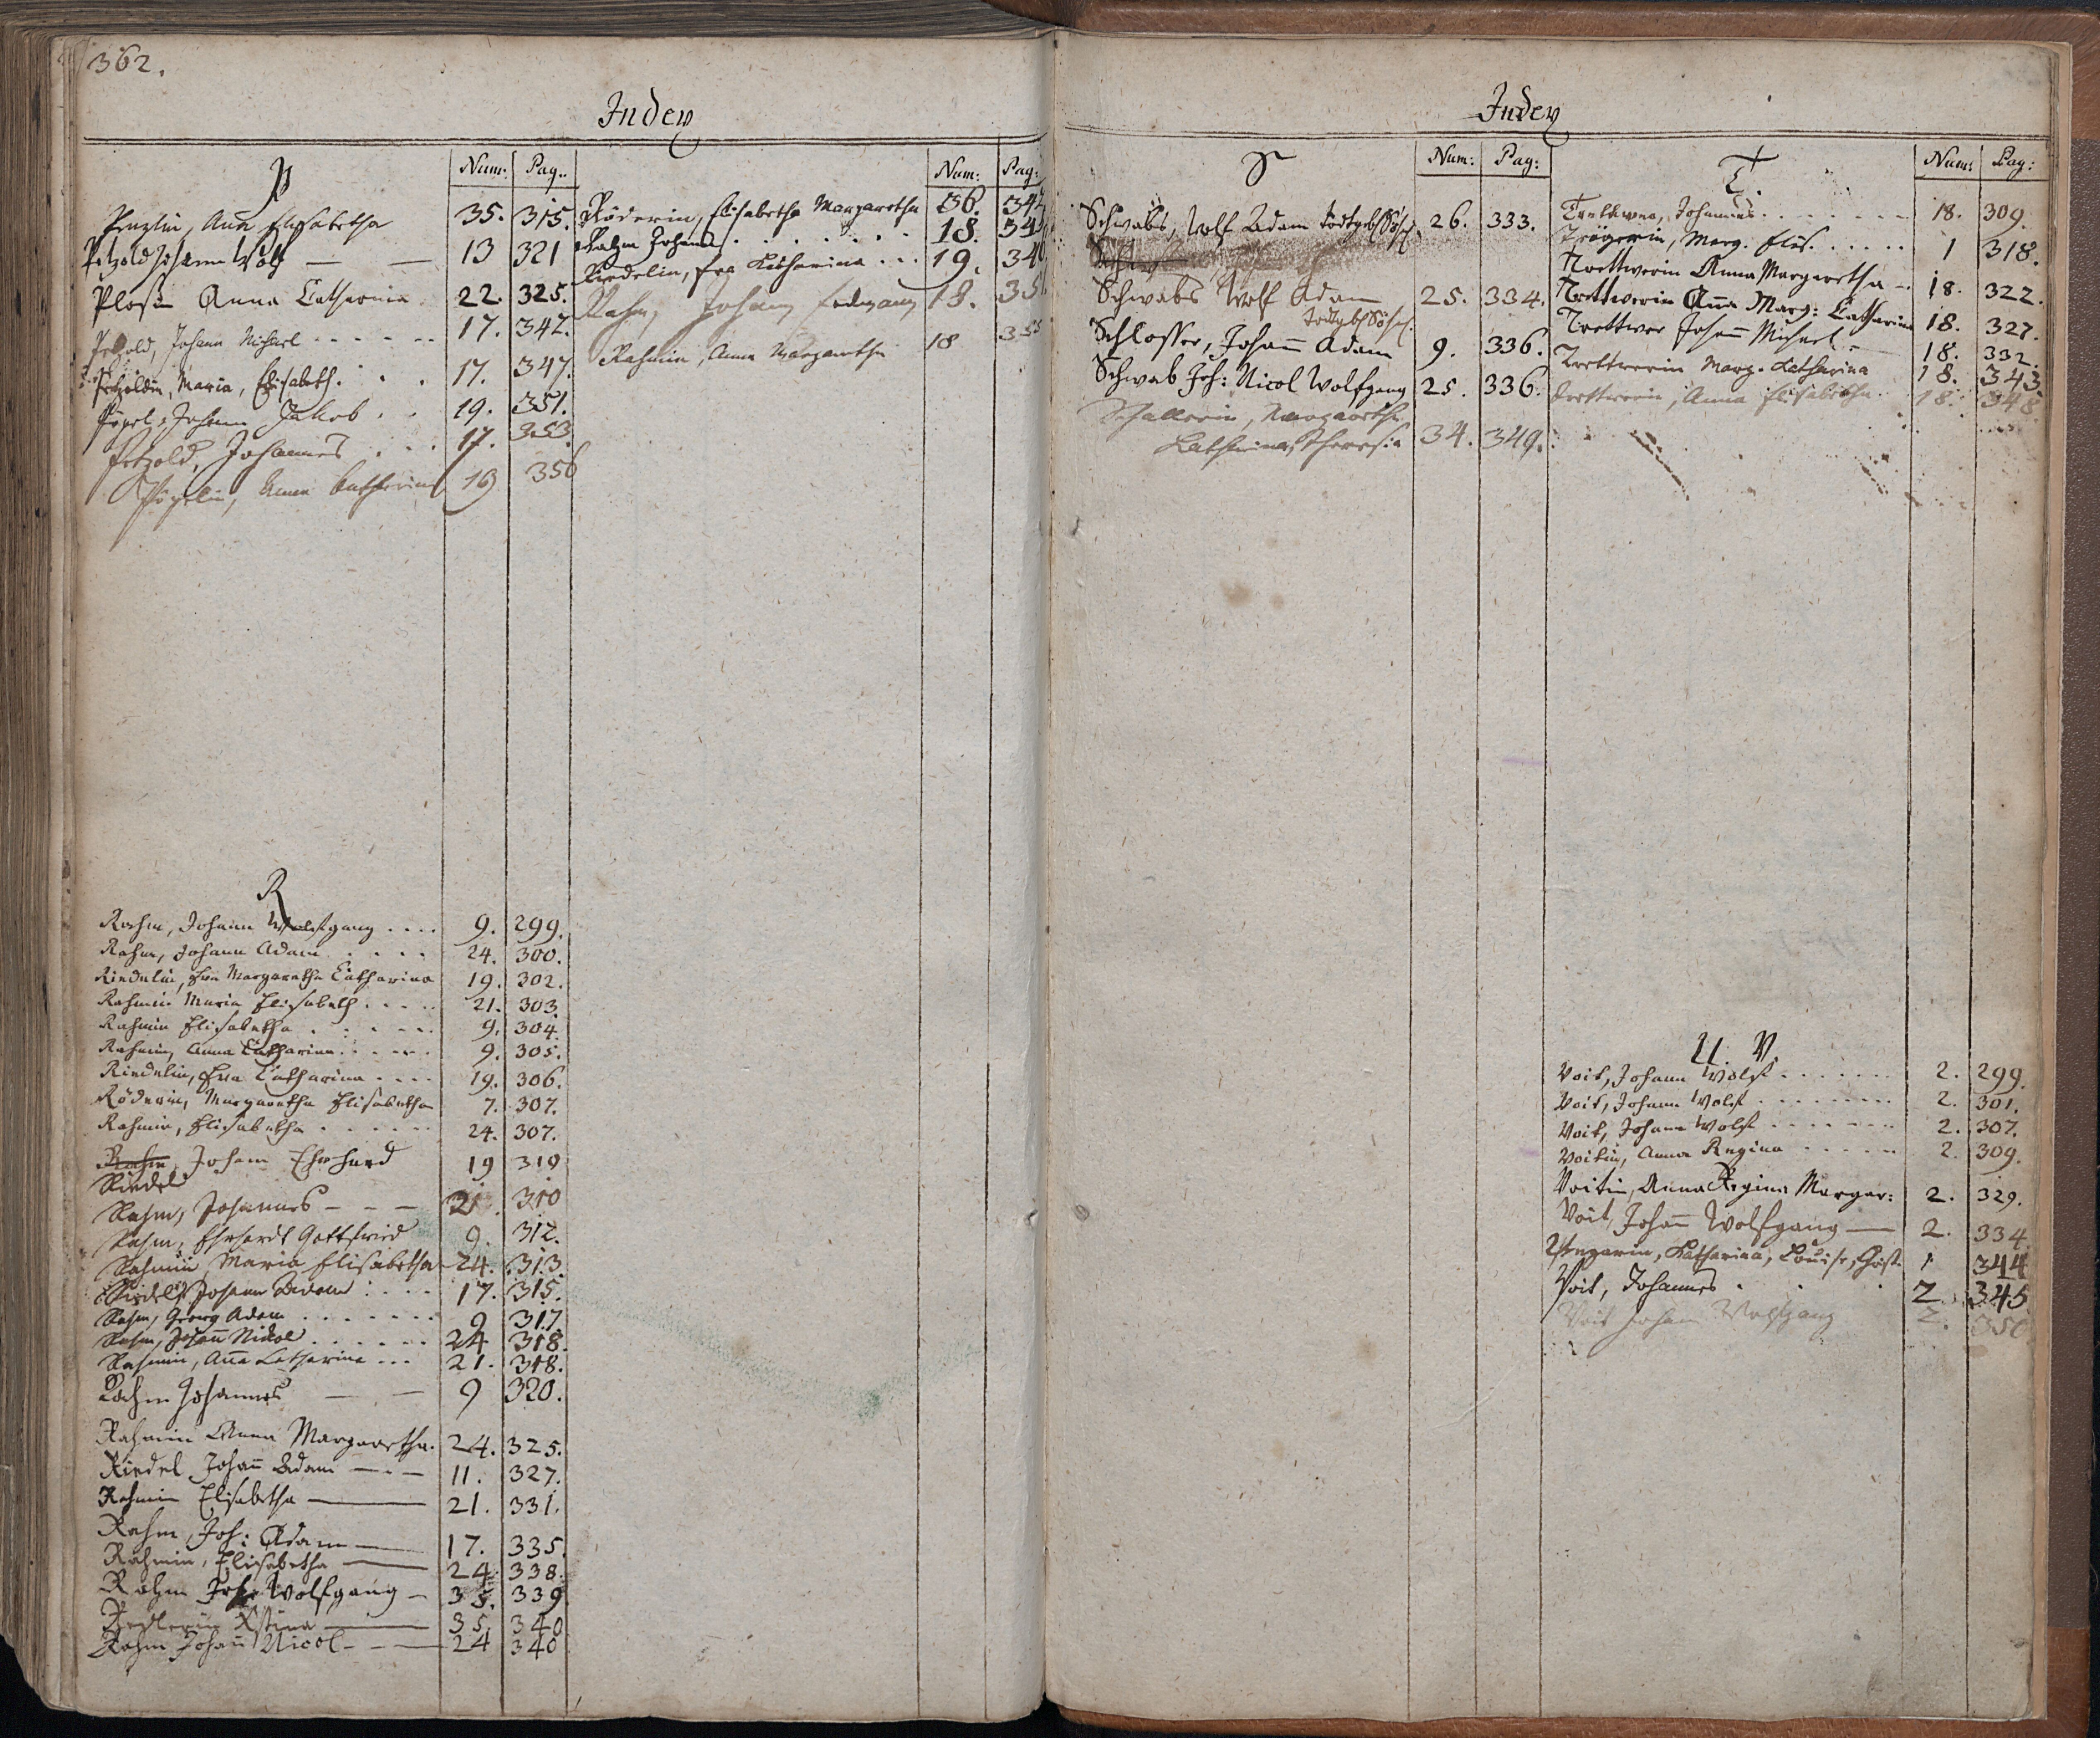 362.
Index
P
Num: Pag.
Anna Elisabetha 35. 315.
Petzold Johann Wolf — — 13 321
Ploß Anna Catharina 22. 325.
Petzold, Johann Michael 17. 342.
Petzoldin, Maria, Elisabeth. 17. 347.
Pögel, Johann Jakob 19. 351.
Petzold, Johannes 17. 353.
Pögelin, Anna Catharina 19 356
R
Rahm, Johann Wolfgang .... 9. 299.
Rahm, Johann Adam .... 24. 300.
Riedelin, Eva Margaretha Catharina 19. 302.
Rahmin Maria Elisabeth .... 21. 303.
Rahmin Elisabetha 9. 304.
Rahmin, Anna Catharina 9. 305.
Riedelin, Eva Catharina .... 19. 306.
Röderin, Margaretha Elisabetha 7. 307.
Rahmin, Elisabetha 24. 307.
Rahm, Johann Ehrhard 19 310
Riedel
Rahm, Johannes — — — 21. 310
Rahm, Ehrhardt Gottfried 9. 312.
Rahmin, Maria Elisabetha 24. 313.
Riedel, Johann Adam 17. 315.
Rahm, Georg Adam 9 317.
Rahm, Johann Nicol 24 318.
Rahmin, Anna Catharina ... 21. 318.
Rahm Johannes — — 9 320.
Rahmin Anna Margaretha. 24. 325.
Riedel Johann Adam — . — 11. 327.
Rahmin Elisabetha — 21. 331.
Rahm, Joh: Adam — 17. 335.
Rahmin, Elisabetha — 24. 338.
Rahm Joh: Wolfgang — 35. 339
— 35. 340
Rahm Johann Nicol — — 24 340
Num: Pag:
Röderin, Elisabetha Margaretha 36. 34
Rahm Johann 18. 34
Riedelin, Eva Catharina ... 19. 34
Rahm, Johann 18. 35
Rahmin, Anna Margaretha 18 35
Index
S
Num: Pag:
Schwabs, Wolf Adam 26. 333.
Schw
Schwabs Wolf Adam 25. 334.
Schlosser, Johann Adam 9. 336.
Schwab Joh: Nicol Wolfgang 25. 336.
Schallerin, Margaretha
Catharina, Theresia 34. 349.
T.
Num: Pag:
Johannes 18. 309.
Trögerin, Marg. Elis. 1 318.
Trettwerin Anna Margaretha 18. 322.
Trettwerin Anna Marg: Catharina 18. 327.
Trettwer Johann Michael 18. 332.
Trettwerin Marg. Catharina 18. 343
Trettwerin, Anna Elisabetha 18. 348
U. V.
Voit, Johann Wolf 2. 299.
Voit, Johann Wolf 2. 301.
Voit, Johann Wolf 2. 307.
Voitin, Anna Regina 2. 309.
Voitin, Anna Regina Margar: 2. 329.
Voit, Johann Wolfgang — 2. 334.
Ungarin, Catharina, Louise, Christ. 1 344
Voit, Johannes 2. 345
Voit Johann Wolfgang 2. 350